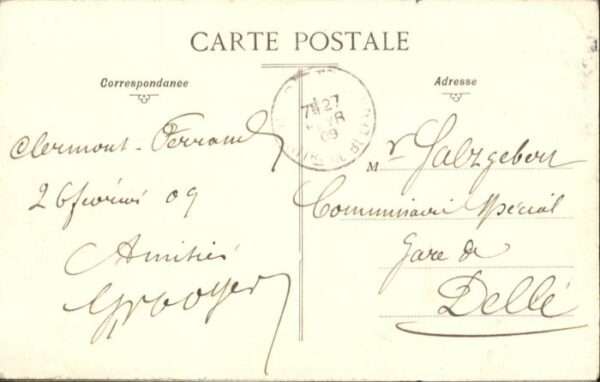 CARTE POSTALE
Correspondance
Adresse
Clermont-Ferrand
26 février 09
Amitiés
27
09
Mr Salzgeber
Commissaire spécial
Gare de
Delle